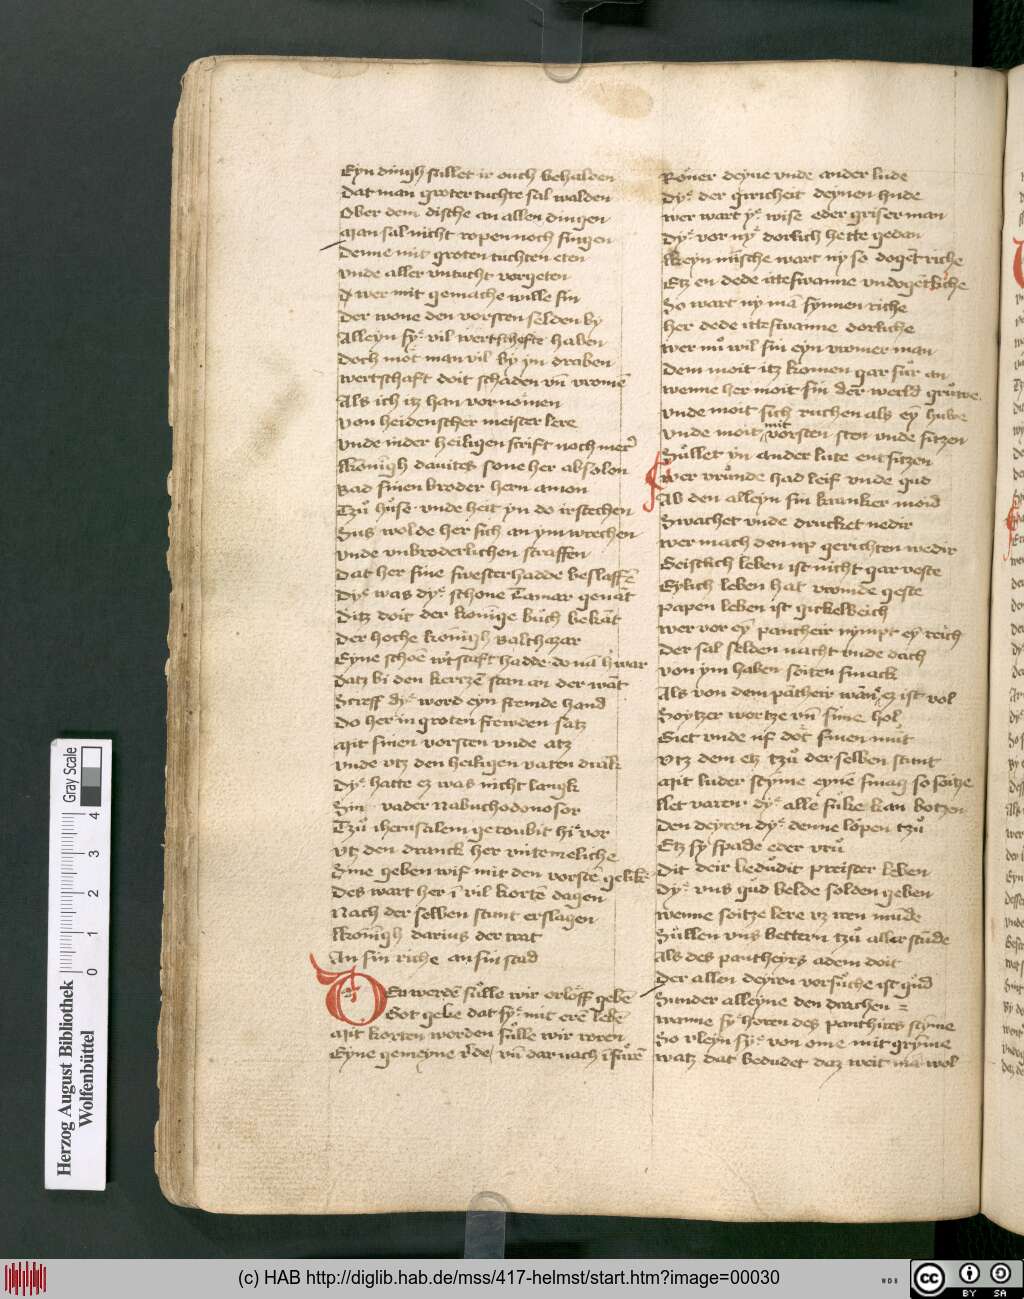 Eyn dingh sullet ir ouch behalden
Dat man groter tuchte sal walden
Ober dem dische an allen dingen
Man sal nicht ropen noch singen
Denne mit groten tuchten eten
Vnde aller vntucht vorgeten
Wer mit gemache wille sin
Der wone den vorsten selden by
Alleyn sy vil wertschefte haben
Doch mot man vil by yn draben
Wertschaft doit schaden vn̄ vromē
Als ich itz han vornomen
Von heidenscher meister lere
Vnde in der heiligen scrift noch mer
Konīgh dauites sone her absolon
Bad sinen broder hern amon
Tzů hůse vnde heit yn do irstechen
Sus wolde her sich an ym wrechen
Vnde vnbroderlichen straffen
Dat her sine swester hadde beslaffē
Dye was dye schone Tamar genāt
Ditz doit der konīge bůch bekāt
Der hoche konīgh Balthazar
Eyne schoē wtscaft hadde do nā h war
Datz bi den kertzē stan an der wāt
Screff dye word eyn fremde hand
Do her in groten frewden satz
Mit sinen vorsten vnde atz
Vnde vtz den heiligen vaten drāk
Dye hatte ez was nicht langk
Sin vader Nabuchodonosor
Tzů iherusalem geroubit hie vor
Vtz den dranck her vntemeliche
Sine geben wif mit den vorstē gelik
Des wart her ī vil kortē dagen
Nach der selben stunt erslagen
Konīgh darius der trat
An sin riche an sin stad
Den werdē sůlle wir orloff gebē
Got gebe dat sye mit erē lebē
Mit korten worden sůlle wir roren
Eyne gemeyne rede vn̄ dar nach ī fůrē
Romer deyne vnde ander lude
Dye der gyricheit deynen hude
Wer wart ye wise eder griserman
Dye vor nye dorlich hette gedan
Keyn mīsche wart ny so doget riche
Etz en dede itteswanne vndogētliche
So wart ny mā synnen riche
Her dede itteswanne dorliche
Wer nů wil sin eyn vromer man
Dem moit itz komen gar sůr an
Wenne her moit sin der werld grůwe
Vnde moit sich ruchen als eȳ huwe
Vnde moit mit vorsten sten vnde sitzen
Sůllet yn ander lute entsitzen
Wer vrůnde had leif vnde gud
Ab den alleyn sin kranker moid
Swachet vnde drucket nedir
Wer mach den vp gerichten wedir
Geistlich leben ist nicht gar veste
Eylich leben hat vromde geste
Papen leben ist gickelweich
Wer vor eȳ pantheir nympt eȳ reich
Der sal selden nacht vnde dach
Von ym haben soiten smack
Als von dem pātheir wān ez ist vol
Soytzer wortze vn̄ sine hol
Siet vnde vf dot sinen můt
Vtz dem etz tzů der selben stunt
Mit luder styme eynē smag so soitze
Let varen dye alle suke kan botzen
Den deyren dye denne lopen tzů
Etz sy spade eder vrů
Dit deir bedůdit preister leben
Dye vns gud belde solden geben
Wenne soitze lere vz iren mude
Sůllen vns bettern tzů aller stūde
Als des pantheyrs adem doit
Der allen deyren versůche ist gůd
Sunder alleyne den drachen
Wanne sy horen des panthires styme
So vleyn sye von ome mit gryme
Watz dat bedudet daz weit mā wol
Herzog August Bibliothek
Wolfenbüttel
0 1 2 3 4
Gray Scale
(c) HAB http://diglib.hab.de/mss/417-helmst/start.htm?image=00030
WDB
cc BY SA